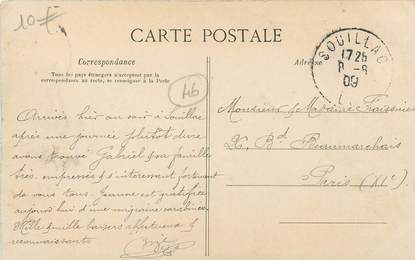 10 F
CARTE POSTALE
Correspondance
Tous les pays étrangers n'acceptent pas la
correspondance au recto, se renseigner à la Poste
Adresse
SOUILLAC
17 25
8 -8
09
46
Arrivés hier au soir à Souillac
après une journée plutôt dure
avons trouvé Gabriel son famille
très empressés & s'intéressant fortement
de vous tous. Jeanne est gratifiée
aujourd'hui d'une migraine carabinée
Mille baisers affectueux &
reconnaissants
Monsieur & Madame
X, Bd Beaumarchais
Paris (XIe)